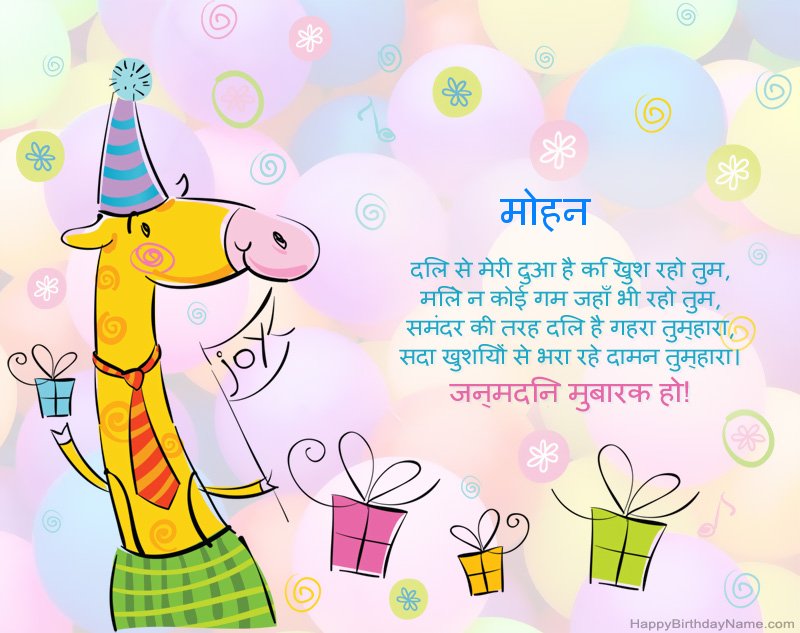 मोहन
दिल से मेरी दुआ है कि खुश रहो तुम,
मिले न कोई गम जहाँ भी रहो तुम,
समंदर की तरह दिल है गहरा तुम्हारा,
सदा खुशियों से भरा रहे दामन तुम्हारा।
जन्मदिन मुबारक हो!
joy
HappyBirthdayName.com